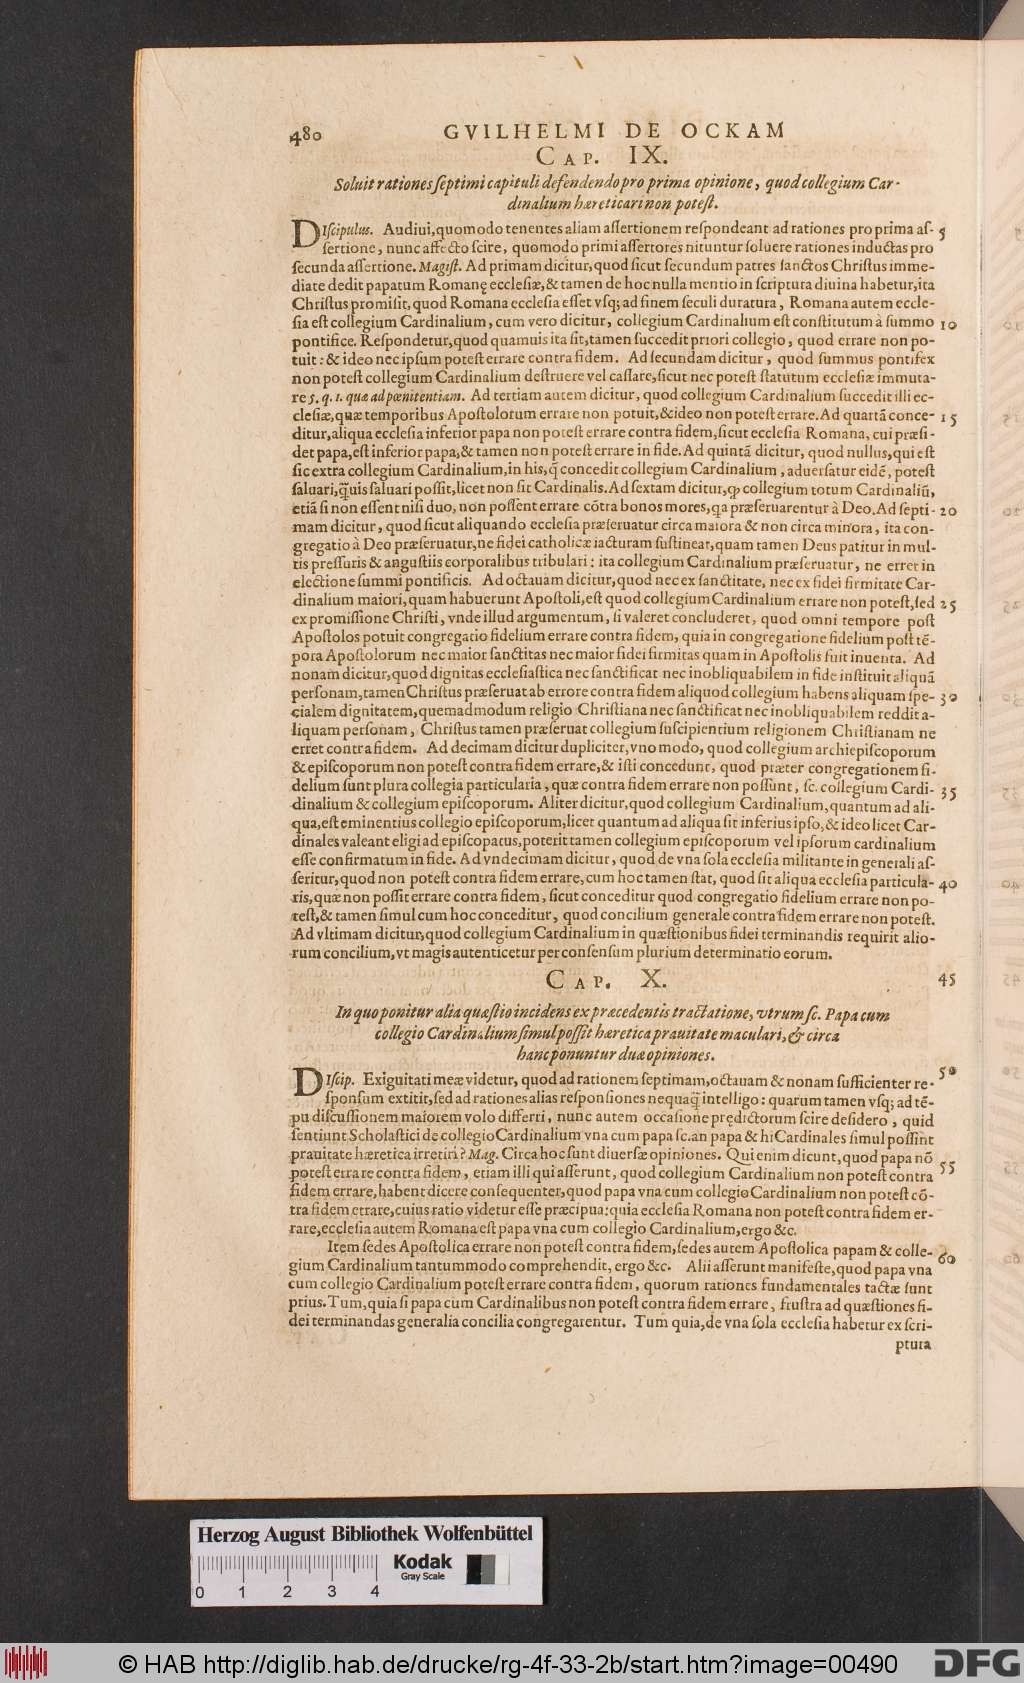 480 GVILHELMI DE OCKAM
CAP. IX.
Soluit rationes ſeptimi capituli defendendo pro prima opinione, quod collegium Car-
dinalium hæreticari non poteſt.
DIſcipulus. Audiui, quomodo tenentes aliam aſſertionem reſpondeant ad rationes pro prima aſ- 5
ſertione, nunc affecto ſcire, quomodo primi aſſertores nituntur ſoluere rationes inductas pro
ſecunda aſſertione. Magiſt. Ad primam dicitur, quod ſicut ſecundum patres ſanctos Chriſtus imme-
diate dedit papatum Romanę eccleſiæ, & tamen de hoc nulla mentio in ſcriptura diuina habetur, ita
Chriſtus promiſit, quod Romana eccleſia eſſet vſq; ad finem ſeculi duratura, Romana autem eccle-
ſia eſt collegium Cardinalium, cum vero dicitur, collegium Cardinalium eſt conſtitutum à ſummo 10
pontifice. Reſpondetur, quod quamuis ita ſit, tamen ſuccedit priori collegio, quod errare non po-
tuit: & ideo nec ipſum poteſt errare contra fidem. Ad ſecundam dicitur, quod ſummus pontifex
non poteſt collegium Cardinalium deſtruere vel caſſare, ſicut nec poteſt ſtatutum eccleſiæ immuta-
re 5. q. 1. quæ ad pœnitentiam. Ad tertiam autem dicitur, quod collegium Cardinalium ſuccedit illi ec-
cleſiæ, quæ temporibus Apoſtolorum errare non potuit, & ideo non poteſt errare. Ad quartã conce- 15
ditur, aliqua eccleſia inferior papa non poteſt errare contra fidem, ſicut eccleſia Romana, cui præſi-
det papa, eſt inferior papa, & tamen non poteſt errare in fide. Ad quintã dicitur, quod nullus, qui eſt
ſic extra collegium Cardinalium, in his, q̃ concedit collegium Cardinalium, aduerſatur eidẽ, poteſt
ſaluari, q̃uis ſaluari poſſit, licet non ſit Cardinalis. Ad ſextam dicitur, ꝙ collegium totum Cardinaliũ,
etiã ſi non eſſent niſi duo, non poſſent errare cõtra bonos mores, qa præſeruarentur à Deo. Ad ſepti- 20
mam dicitur, quod ſicut aliquando eccleſia præſeruatur circa maiora & non circa minora, ita con-
gregatio à Deo præſeruatur, ne fidei catholicæ iacturam ſuſtineat, quam tamen Deus patitur in mul-
tis preſſuris & anguſtiis corporalibus tribulari: ita collegium Cardinalium præſeruatur, ne erret in
electione ſummi pontificis. Ad octauam dicitur, quod nec ex ſanctitate, nec ex fidei firmitate Car-
dinalium maiori, quam habuerunt Apoſtoli, eſt quod collegium Cardinalium errare non poteſt, ſed 25
ex promiſſione Chriſti, vnde illud argumentum, ſi valeret concluderet, quod omni tempore poſt
Apoſtolos potuit congregatio fidelium errare contra fidem, quia in congregatione fidelium poſt tẽ-
pora Apoſtolorum nec maior ſanctitas nec maior fidei firmitas quam in Apoſtolis fuit inuenta. Ad
nonam dicitur, quod dignitas eccleſiaſtica nec ſanctificat nec inobliquabilem in fide inſtituit aliquã
perſonam, tamen Chriſtus præſeruat ab errore contra fidem aliquod collegium habens aliquam ſpe- 30
cialem dignitatem, quemadmodum religio Chriſtiana nec ſanctificat nec inobliquabilem reddit a-
liquam perſonam, Chriſtus tamen præſeruat collegium ſuſcipientium religionem Chriſtianam ne
erret contra fidem. Ad decimam dicitur dupliciter, vno modo, quod collegium archiepiſcoporum
& epiſcoporum non poteſt contra fidem errare, & iſti concedunt, quod præter congregationem fi-
delium ſunt plura collegia particularia, quæ contra fidem errare non poſſunt, ſc. collegium Cardi- 35
dinalium & collegium epiſcoporum. Aliter dicitur, quod collegium Cardinalium, quantum ad ali-
qua, eſt eminentius collegio epiſcoporum, licet quantum ad aliqua ſit inferius ipſo, & ideo licet Car-
dinales valeant eligi ad epiſcopatus, poterit tamen collegium epiſcoporum vel ipſorum cardinalium
eſſe confirmatum in fide. Ad vndecimam dicitur, quod de vna ſola eccleſia militante in generali aſ-
ſeritur, quod non poteſt contra fidem errare, cum hoc tamen ſtat, quod ſit aliqua eccleſia particula- 40
ris, quæ non poſſit errare contra fidem, ſicut conceditur quod congregatio fidelium errare non po-
teſt, & tamen ſimul cum hoc conceditur, quod concilium generale contra fidem errare non poteſt.
Ad vltimam dicitur, quod collegium Cardinalium in quæſtionibus fidei terminandis requirit alio-
rum concilium, vt magis autenticetur per conſenſum plurium determinatio eorum.
CAP. X. 45
In quo ponitur alia quæſtio incidens ex præcedentis tractatione, vtrum ſc. Papa cum
collegio Cardinalium ſimul poſſit hæretica prauitate maculari, & circa
hanc ponuntur duæ opiniones.
DIſcip. Exiguitati meæ videtur, quod ad rationem ſeptimam, octauam & nonam ſufficienter re- 50
ſponſum extitit, ſed ad rationes alias reſponſiones nequaq̃ intelligo: quarum tamen vſq; ad tẽ-
pu diſcuſſionem maiorem volo differri, nunc autem occaſione prędictorum ſcire deſidero, quid
ſentiunt Scholaſtici de collegio Cardinalium vna cum papa ſc. an papa & hi Cardinales ſimul poſſint
prauitate hæretica irretiri? Mag. Circa hoc ſunt diuerſæ opiniones. Qui enim dicunt, quod papa nõ
poteſt errare contra fidem, etiam illi qui aſſerunt, quod collegium Cardinalium non poteſt contra 55
fidem errare, habent dicere conſequenter, quod papa vna cum collegio Cardinalium non poteſt cõ-
tra fidem errare, cuius ratio videtur eſſe præcipua: quia eccleſia Romana non poteſt contra fidem er-
rare, eccleſia autem Romana eſt papa vna cum collegio Cardinalium, ergo &c.
Item ſedes Apoſtolica errare non poteſt contra fidem, ſedes autem Apoſtolica papam & colle-
gium Cardinalium tantummodo comprehendit, ergo &c. Alii aſſerunt manifeſte, quod papa vna 60
cum collegio Cardinalium poteſt errare contra fidem, quorum rationes fundamentales tactæ ſunt
prius. Tum, quia ſi papa cum Cardinalibus non poteſt contra fidem errare, fruſtra ad quæſtiones fi-
dei terminandas generalia concilia congregarentur. Tum quia, de vna ſola eccleſia habetur ex ſcri-
ptura
Herzog August Bibliothek Wolfenbüttel
0 1 2 3 4
Kodak
Gray Scale
© HAB http://diglib.hab.de/drucke/rg-4f-33-2b/start.htm?image=00490
DFG